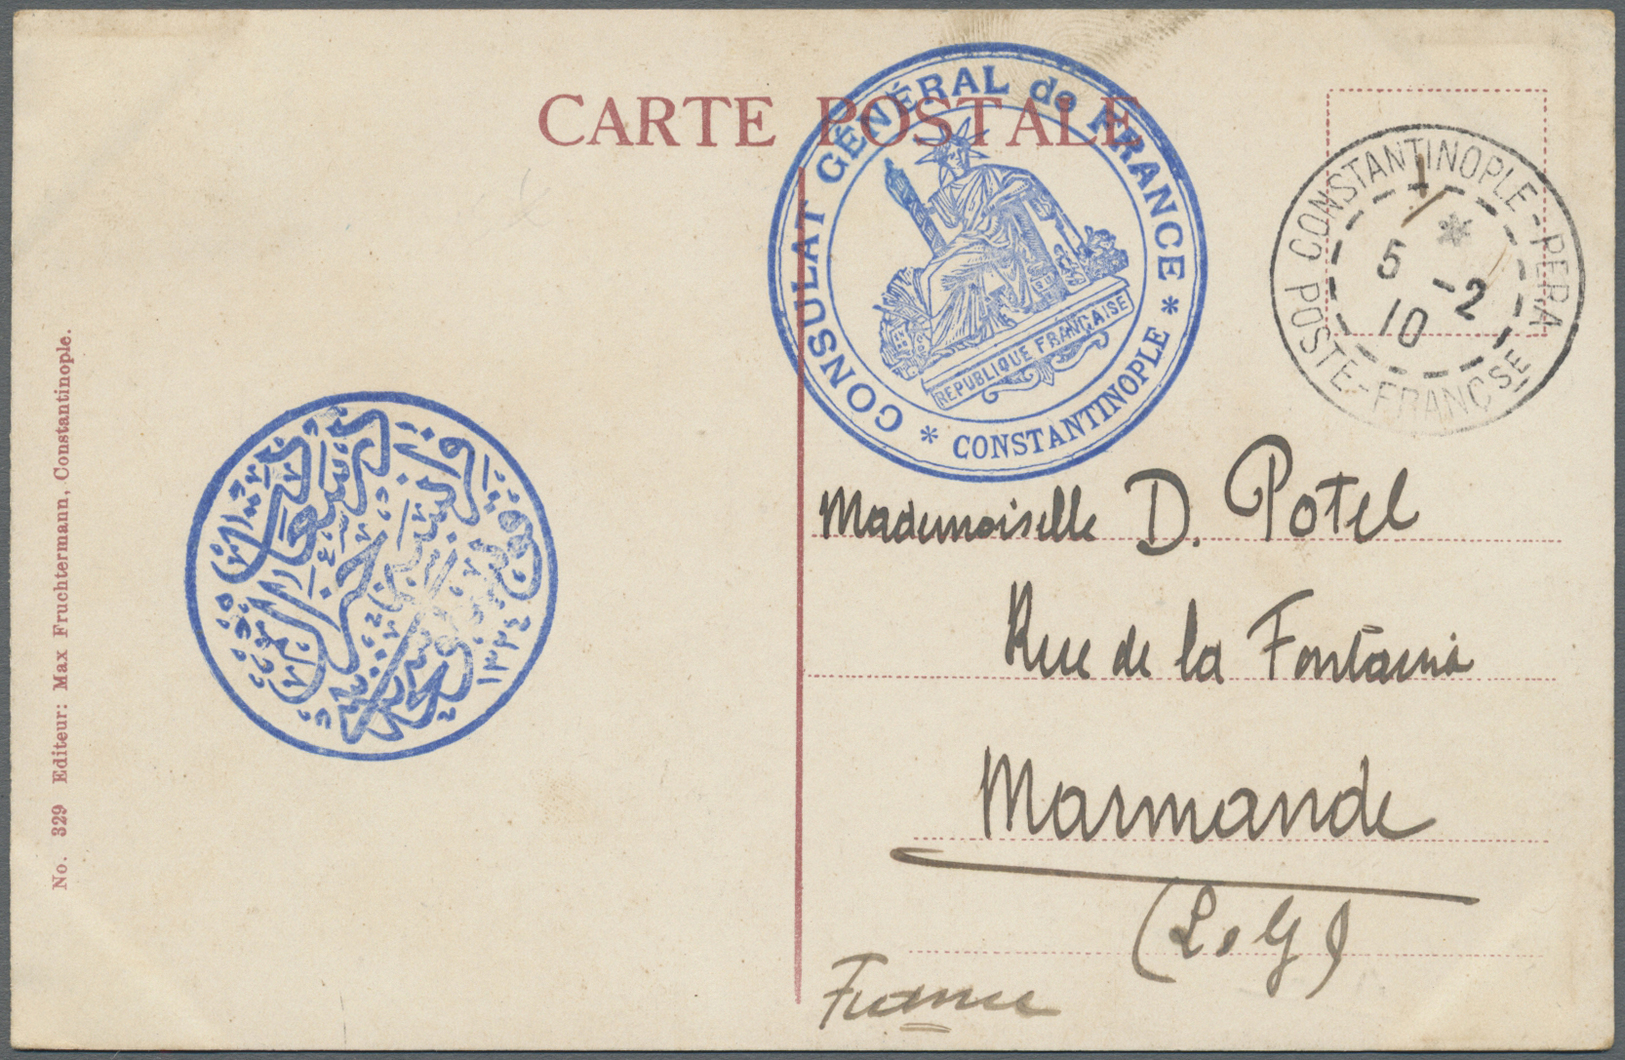 CARTE POSTALE
CONSULAT GÉNÉRAL de FRANCE
* CONSTANTINOPLE *
REPUBLIQUE FRANÇAISE
CONSTANTINOPLE-PERA
*
5 -2
10
POSTE-FRANÇSE
Mademoiselle D. Potel
Rue de la
Marmande
(L.G)
France
١٣٢٤
No. 329 Editeur: Max Fruchtermann, Constantinople.